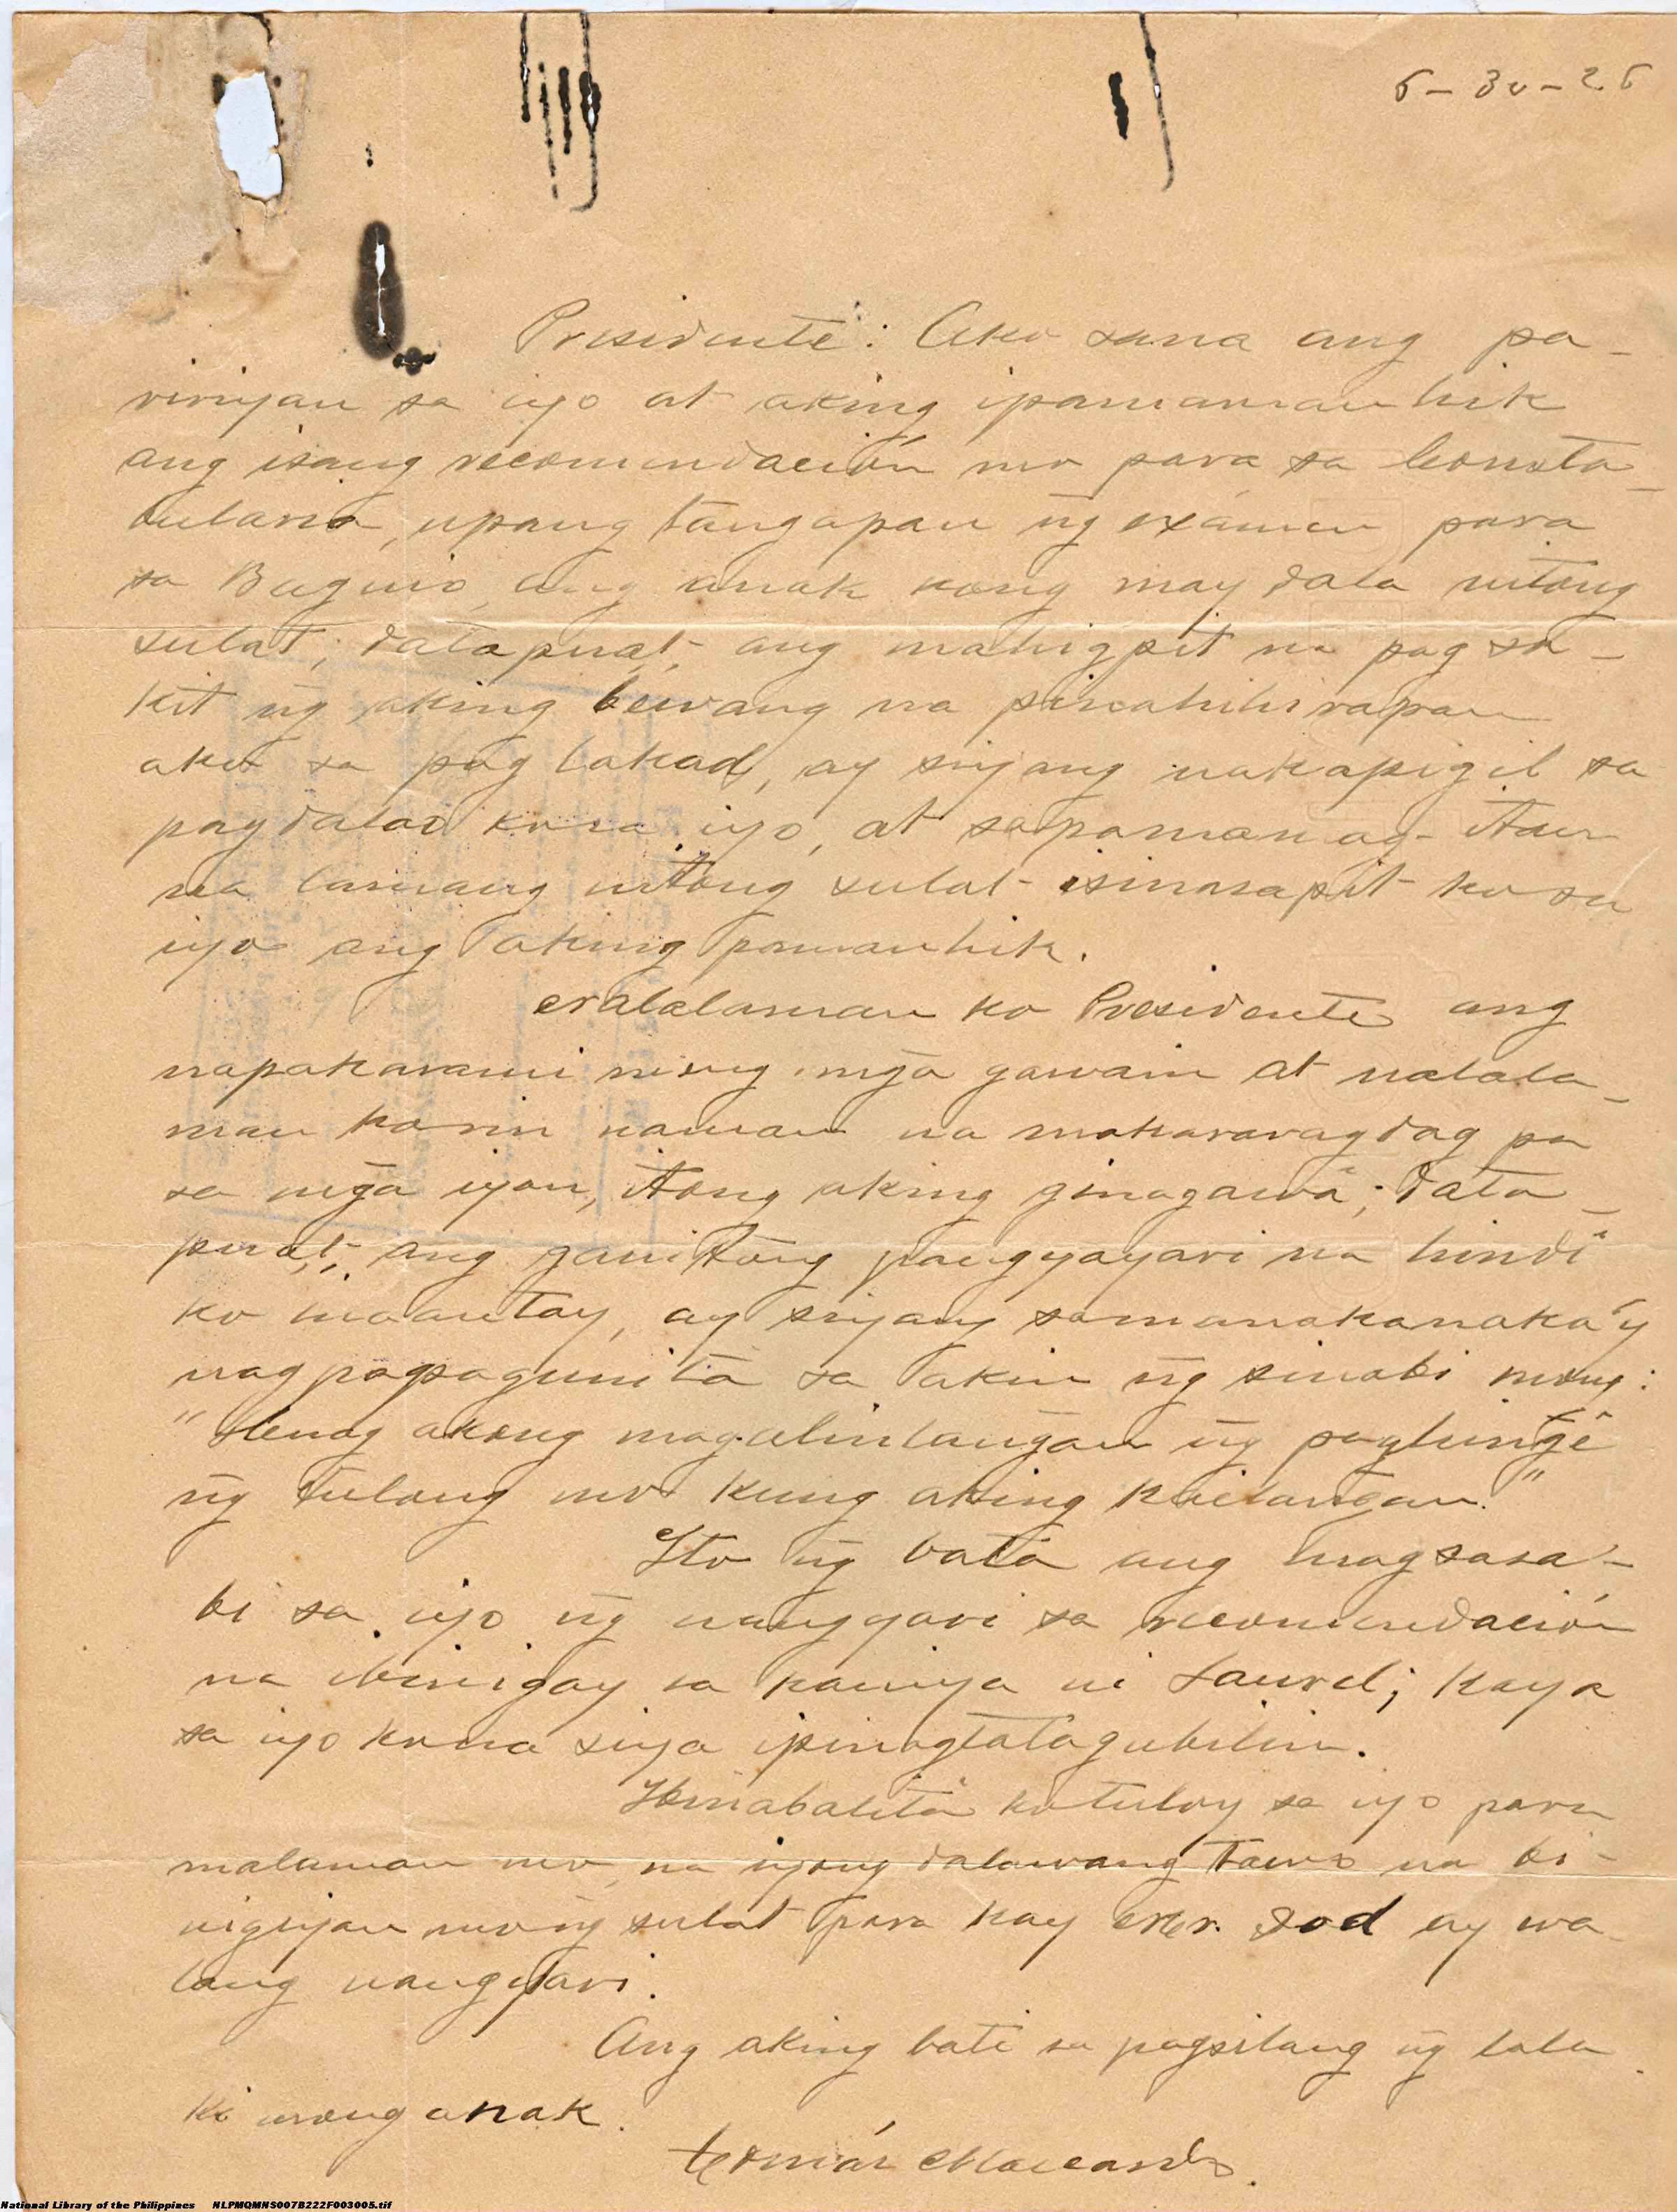 6-30-26
Presidente: Ako sana ang pa-
ririyan sa iyo at aking ipamamanhik
ang isang recomendación mo para sa Consta-
bularia, upang tangapan ñg exámen para
sa Baguio, ang anak kong may dala nitong
sulat; datapuat, ang mahigpit na pag sa-
kit ñg aking bewang na pinahihirapan
ako sa pag lakad, ay siyang nakapigil sa
pagdalao ko sa iyo, at sa pamamag-itan
na lamang nitong sulat isinasapit ko sa
iyo ang aking pamanhik.
Nalalaman ko Presidente ang
napakarami mong mga gawain at nalala-
man ko rin naman na makararagdag pa
sa mga iyon, itong aking ginagawâ; data-
puat, ang ganitong pangyayari na hindî
ko maantay, ay siyang samanakanaka'y
nagpapagunita sa akin ñg sinabi mong:
"Huag akong magalinlañgan ñg paghiñgî
ñg tulong mo kung aking kailañgan."
Ito ñg bata ang magsasa-
bi sa iyo ñg nangyari sa recomendación
na ibinigay sa kaniya ni Laurel; kaya
sa iyo ko na siya ipinagtatagubilin.
Ibinabalità ko tuloy sa iyo para
malaman mo, na iyong dalawang tawo na bi-
nigyan mo ñg sulat para kay Mr. Dod ay wa-
lang nangyari.
Ang aking bati sa pagsilang ñg lala-
ki mong anak.
Tomás